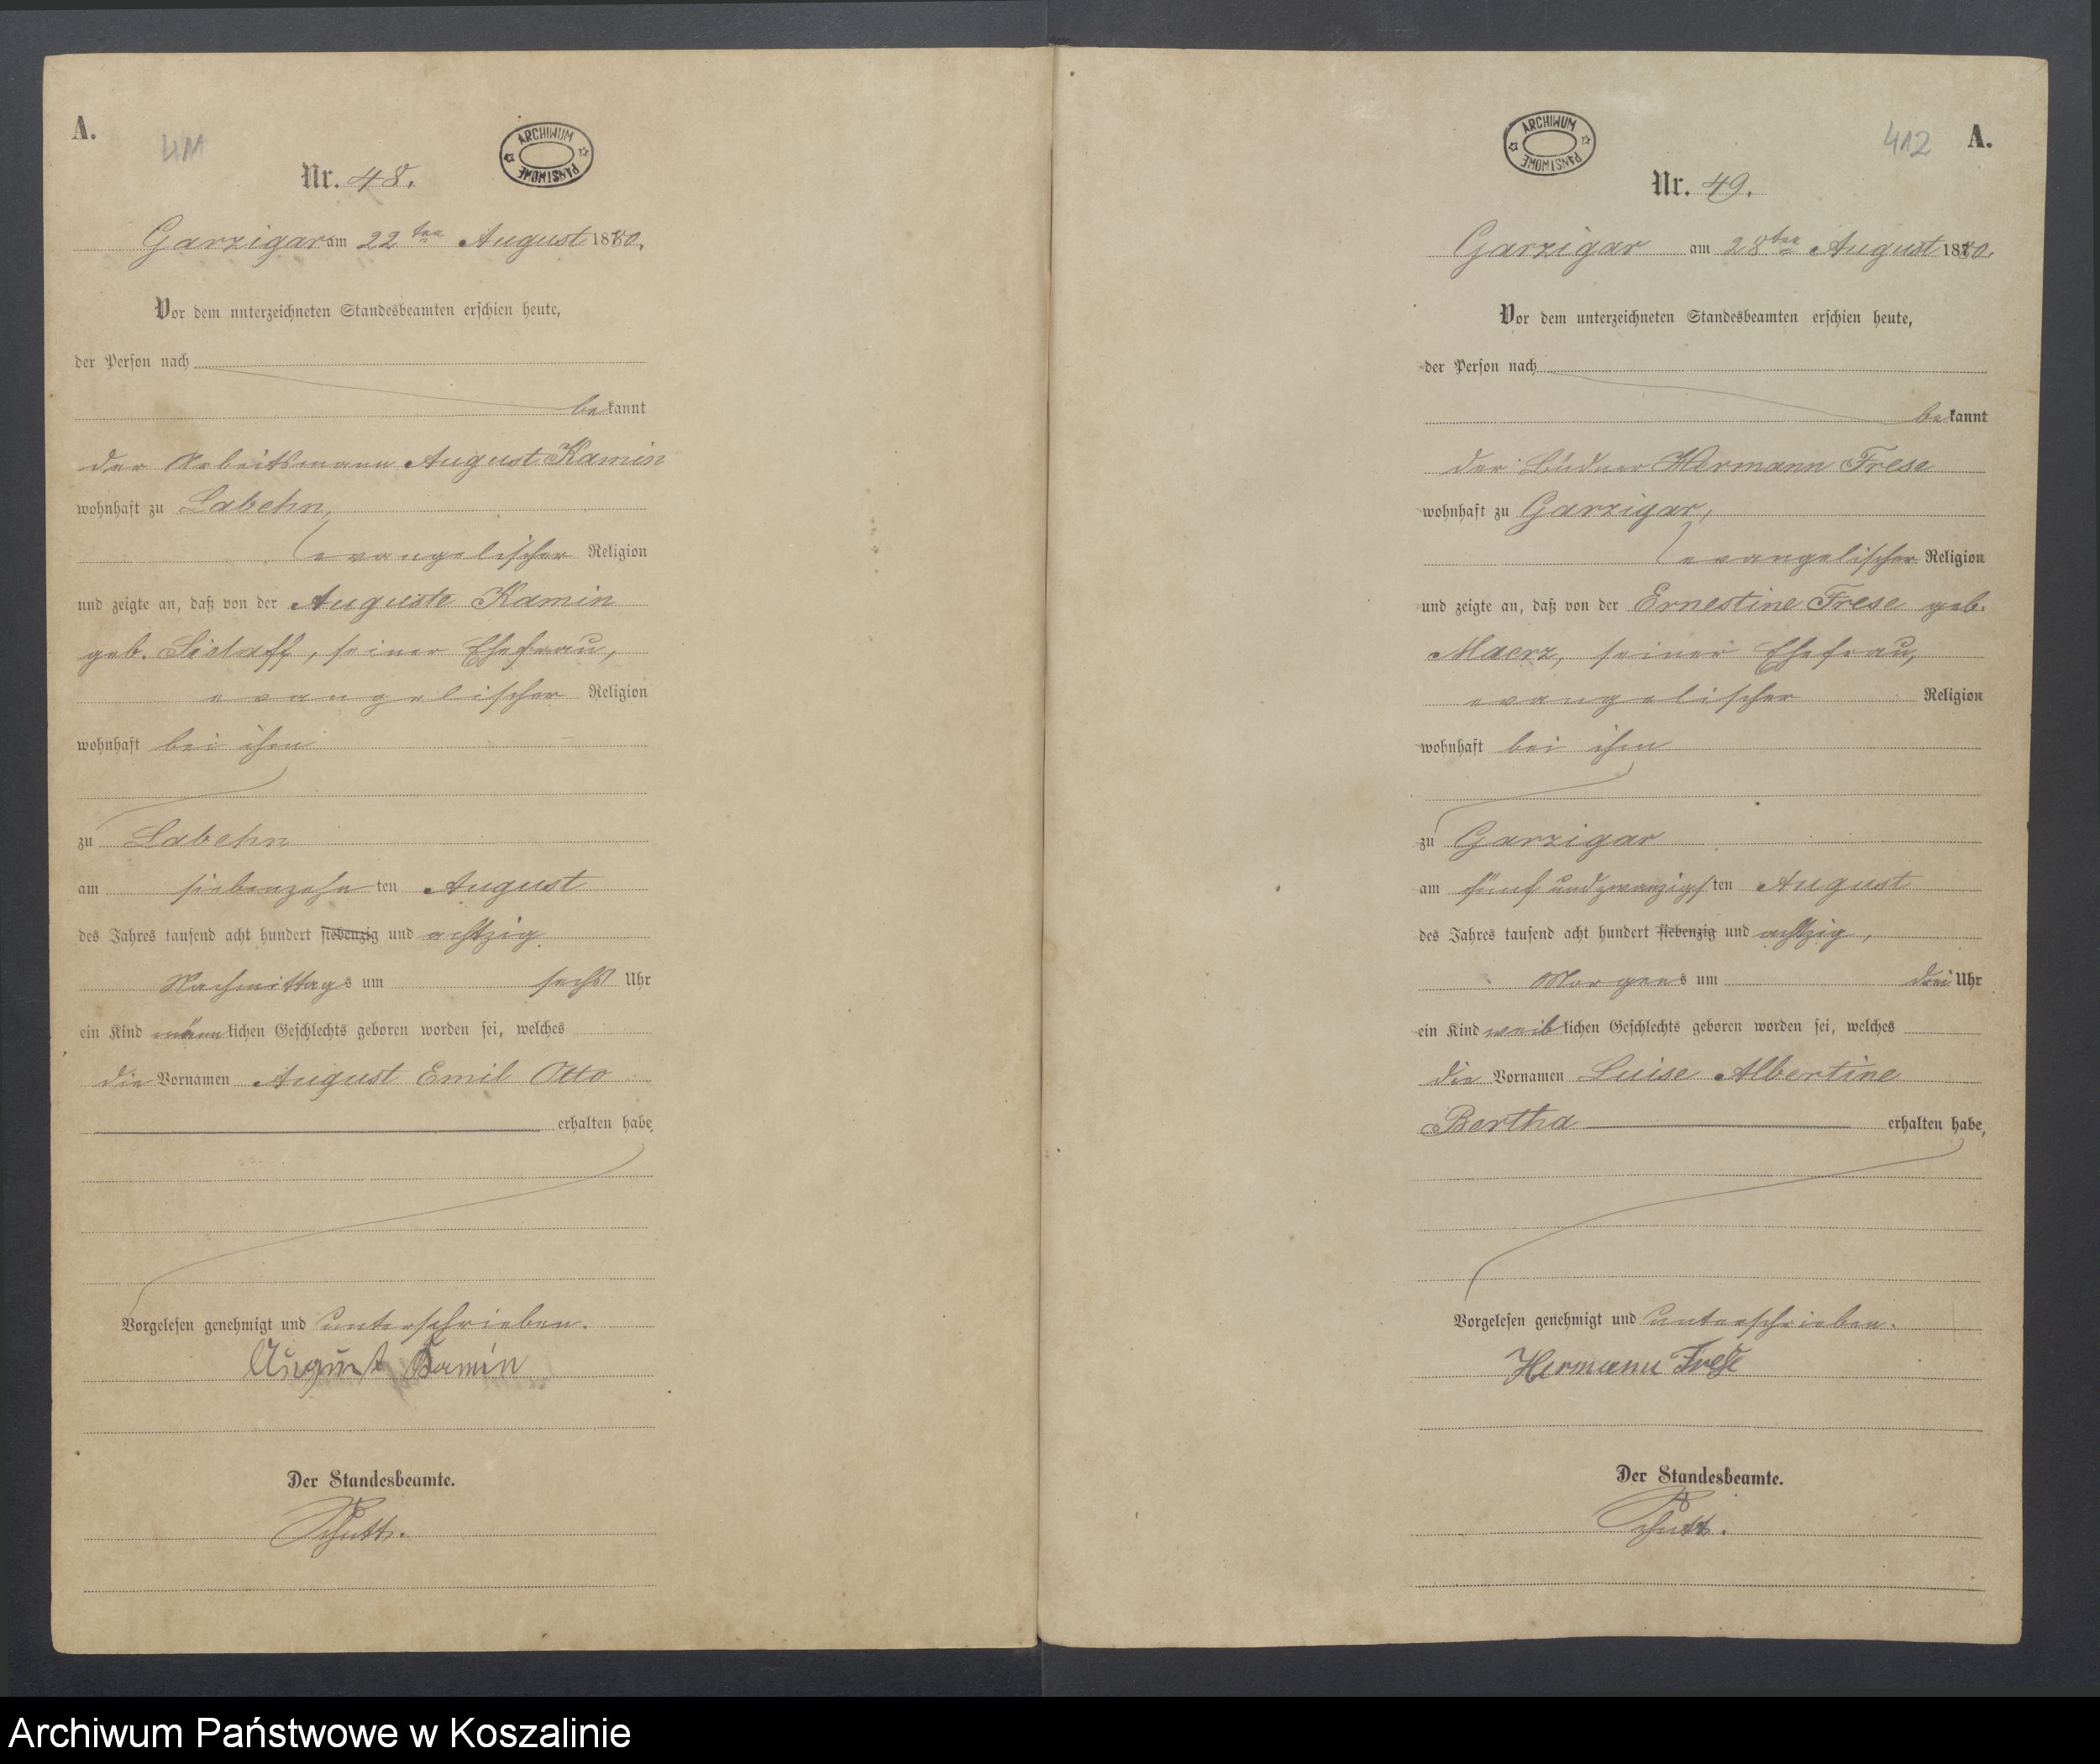 A.
411
Nr. 48.
ARCHIWUM PAŃSTWOWE
Garzigar am 22ten August 1880.
Vor dem unterzeichneten Standesbeamten erschien heute,
der Person nach
bekannt
der Arbeitsmann August Kamin
wohnhaft zu Labehn,
evangelischer Religion
und zeigte an, daß von der Auguste Kamin
geb. , seiner Ehefrau,
evangelischer Religion
wohnhaft bei ihm
zu Labehn
am siebenzehnten August
des Jahres tausend acht hundert siebenzig und achtzig
Nachmittags um sechs Uhr
ein Kind männlichen Geschlechts geboren worden sei, welches
die Vornamen August Emil Otto
erhalten habe,
Vorgelesen genehmigt und unterschrieben.
August Kamin
Der Standesbeamte.
ARCHIWUM PAŃSTWOWE
412
A.
Nr. 49.
Garzigar am 28ten August 1880.
Vor dem unterzeichneten Standesbeamten erschien heute,
der Person nach
bekannt
der Büdner Hermann Frese
wohnhaft zu Garzigar,
evangelischer Religion
und zeigte an, daß von der Ernestine Frese geb.
Maerz, seiner Ehefrau,
evangelischer Religion
wohnhaft bei ihm
zu Garzigar
am fünfundzwanzigsten August
des Jahres tausend acht hundert siebenzig und achtzig,
Morgens um drei Uhr
ein Kind weiblichen Geschlechts geboren worden sei, welches
die Vornamen Luise Albertine
Bertha erhalten habe,
Vorgelesen genehmigt und unterschrieben.
Hermann Frese
Der Standesbeamte.
Archiwum Państwowe w Koszalinie